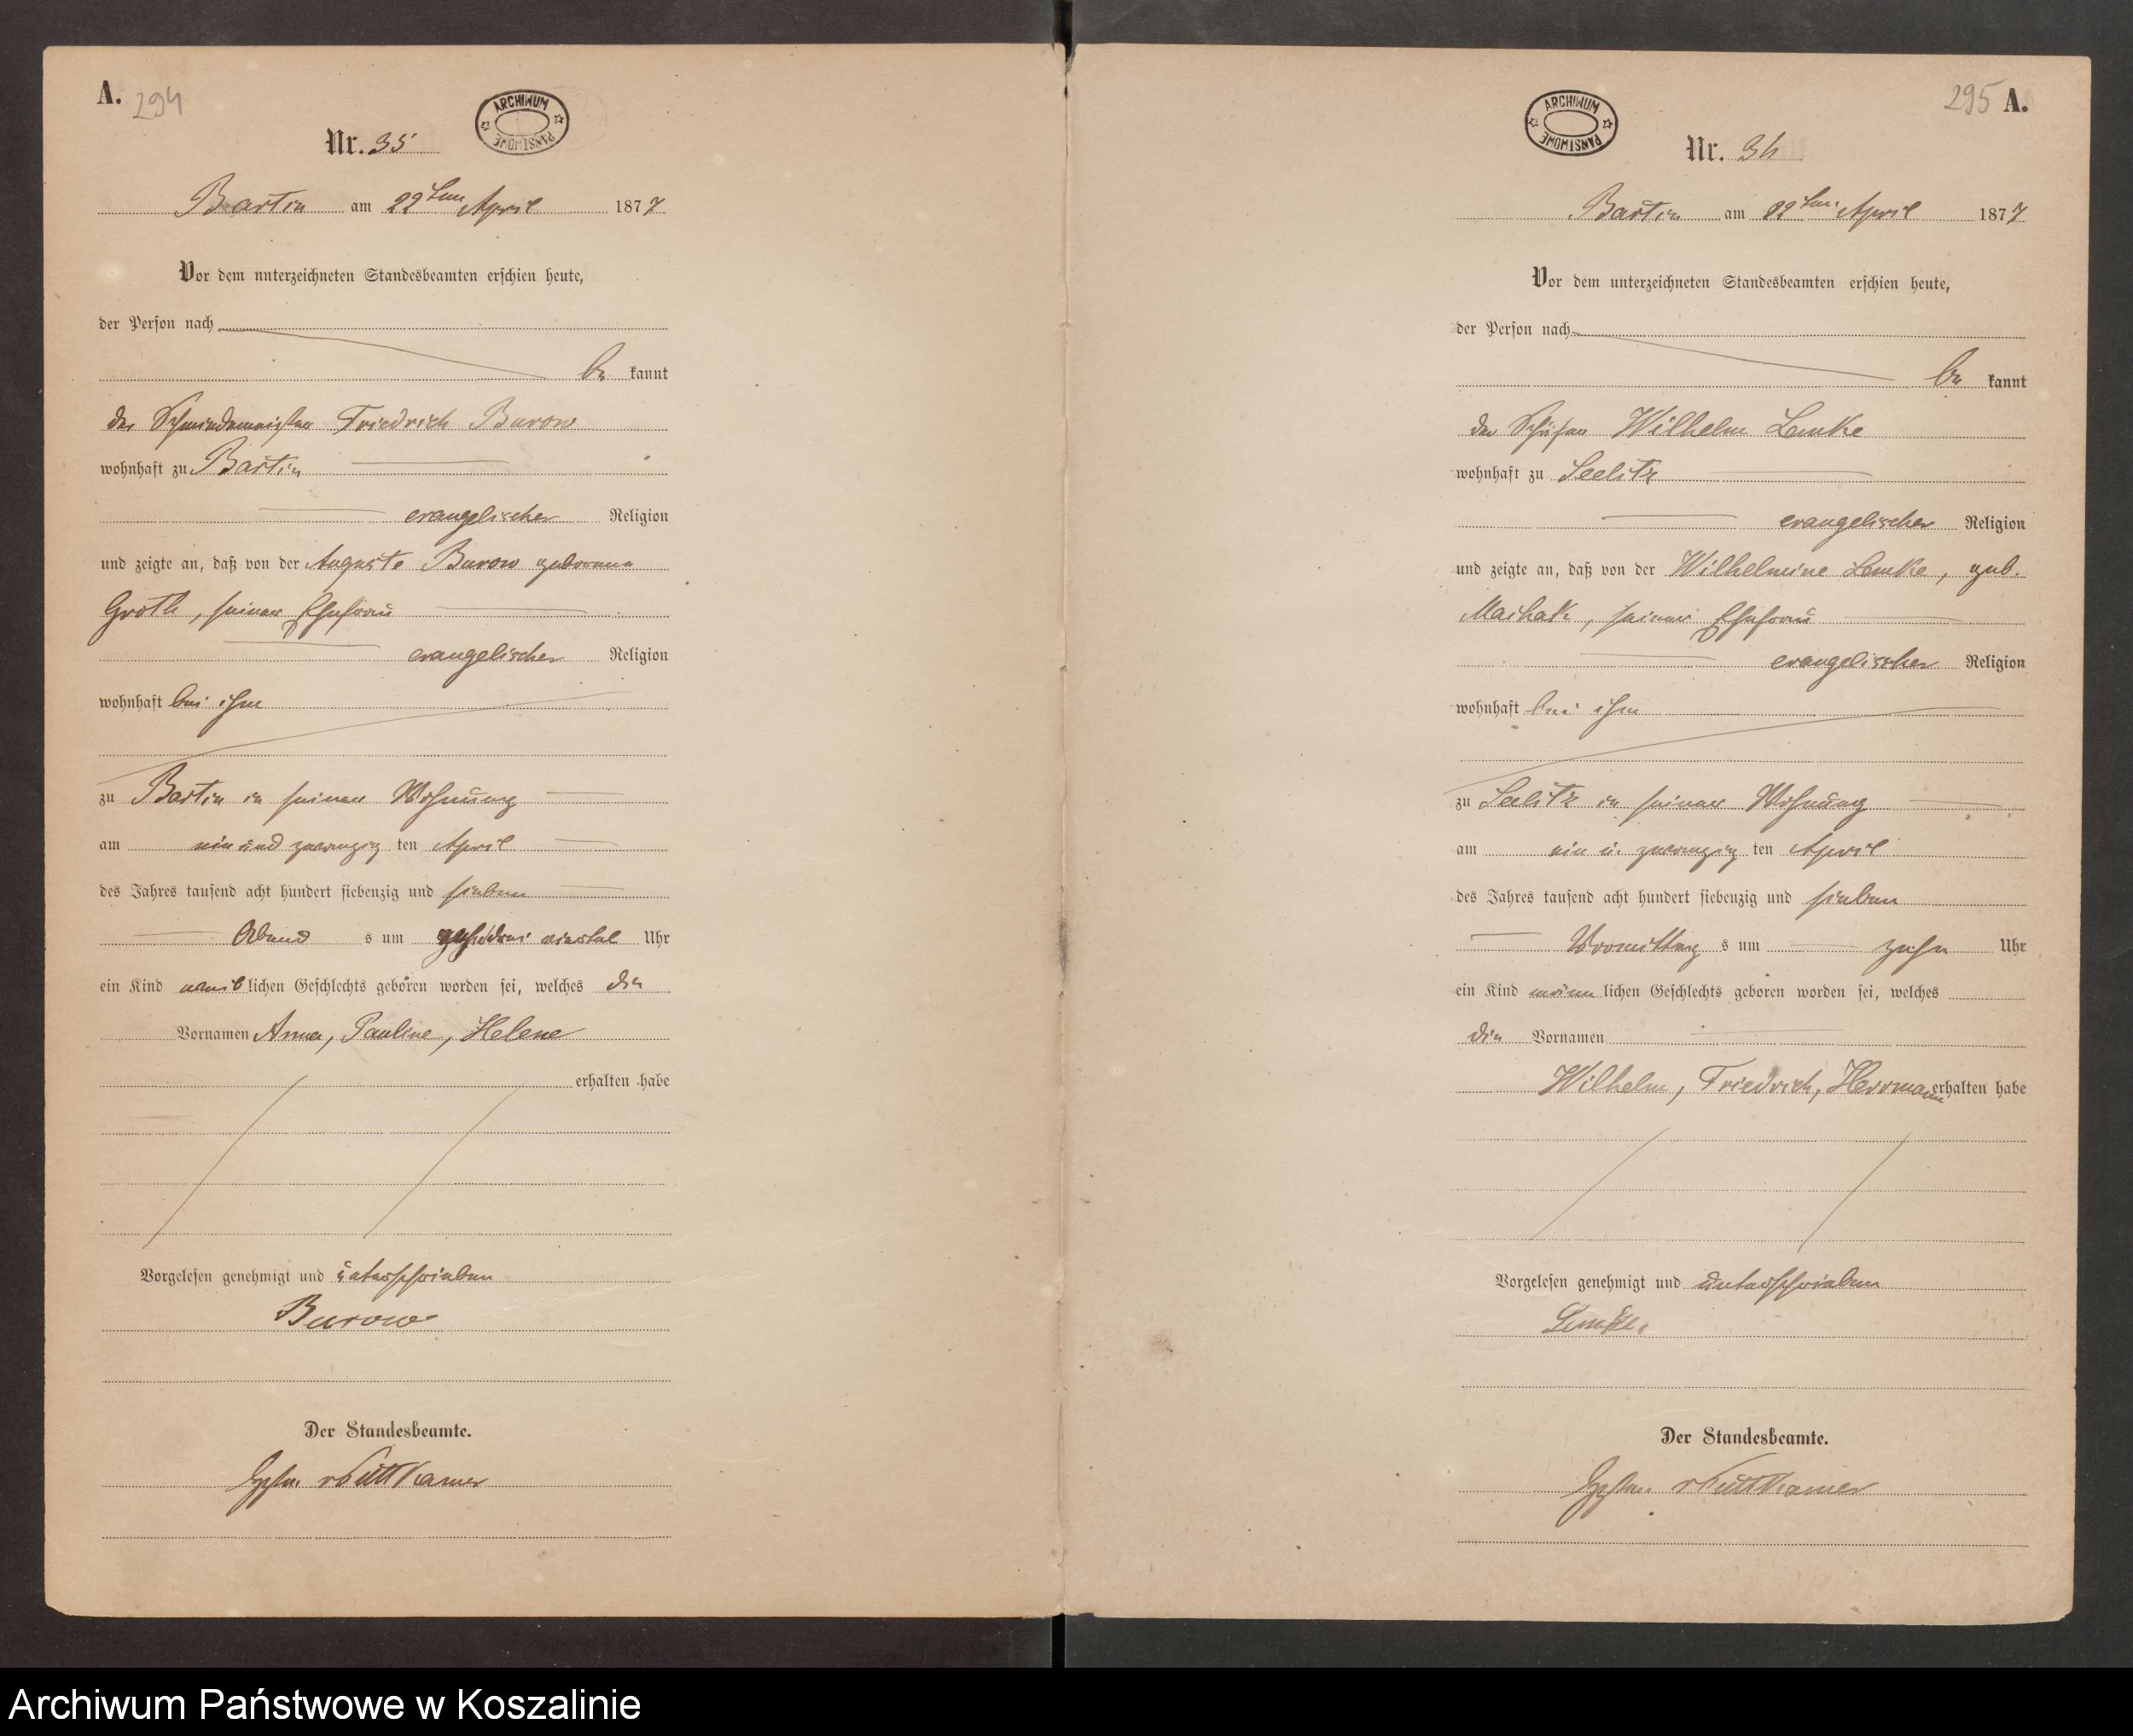 A. 294
ARCHIWUM PAŃSTWOWE
Nr. 35
Bartin am 22ten April 1877
Vor dem unterzeichneten Standesbeamten erschien heute,
der Person nach
be kannt
der Schmiedemeister Friedrich Burow
wohnhaft zu Bartin
evangelischer Religion
und zeigte an, daß von der Auguste Burow geborene
Groth, seiner Ehefrau
evangelischer Religion
wohnhaft bei ihm
zu Bartin in seiner Wohnung
am ein und zwanzig ten April
des Jahres tausend acht hundert siebenzig und sieben
Abend s um drei viertel Uhr
ein Kind weib lichen Geschlechts geboren worden sei, welches die
Vornamen Anna, Pauline, Helene
erhalten habe
Vorgelesen genehmigt und unterschrieben
Burow
Der Standesbeamte.
v Puttkamer
295 A.
ARCHIWUM PAŃSTWOWE
Nr. 36
Bartin am 22ten April 1877
Vor dem unterzeichneten Standesbeamten erschien heute,
der Person nach
be kannt
der Schäfer Wilhelm Lemke
wohnhaft zu Seelitz
evangelischer Religion
und zeigte an, daß von der Wilhelmine Lemke, geb.
Machak, seiner Ehefrau
evangelischer Religion
wohnhaft bei ihm
zu Seelitz in seiner Wohnung
am ein u. zwanzig ten April
des Jahres tausend acht hundert siebenzig und sieben
Vormittag s um zehn Uhr
ein Kind männ lichen Geschlechts geboren worden sei, welches
die Vornamen
Wilhelm, Friedrich, Herrmann erhalten habe
Vorgelesen genehmigt und unterschrieben
Lemke.
Der Standesbeamte.
v Puttkamer
Archiwum Państwowe w Koszalinie